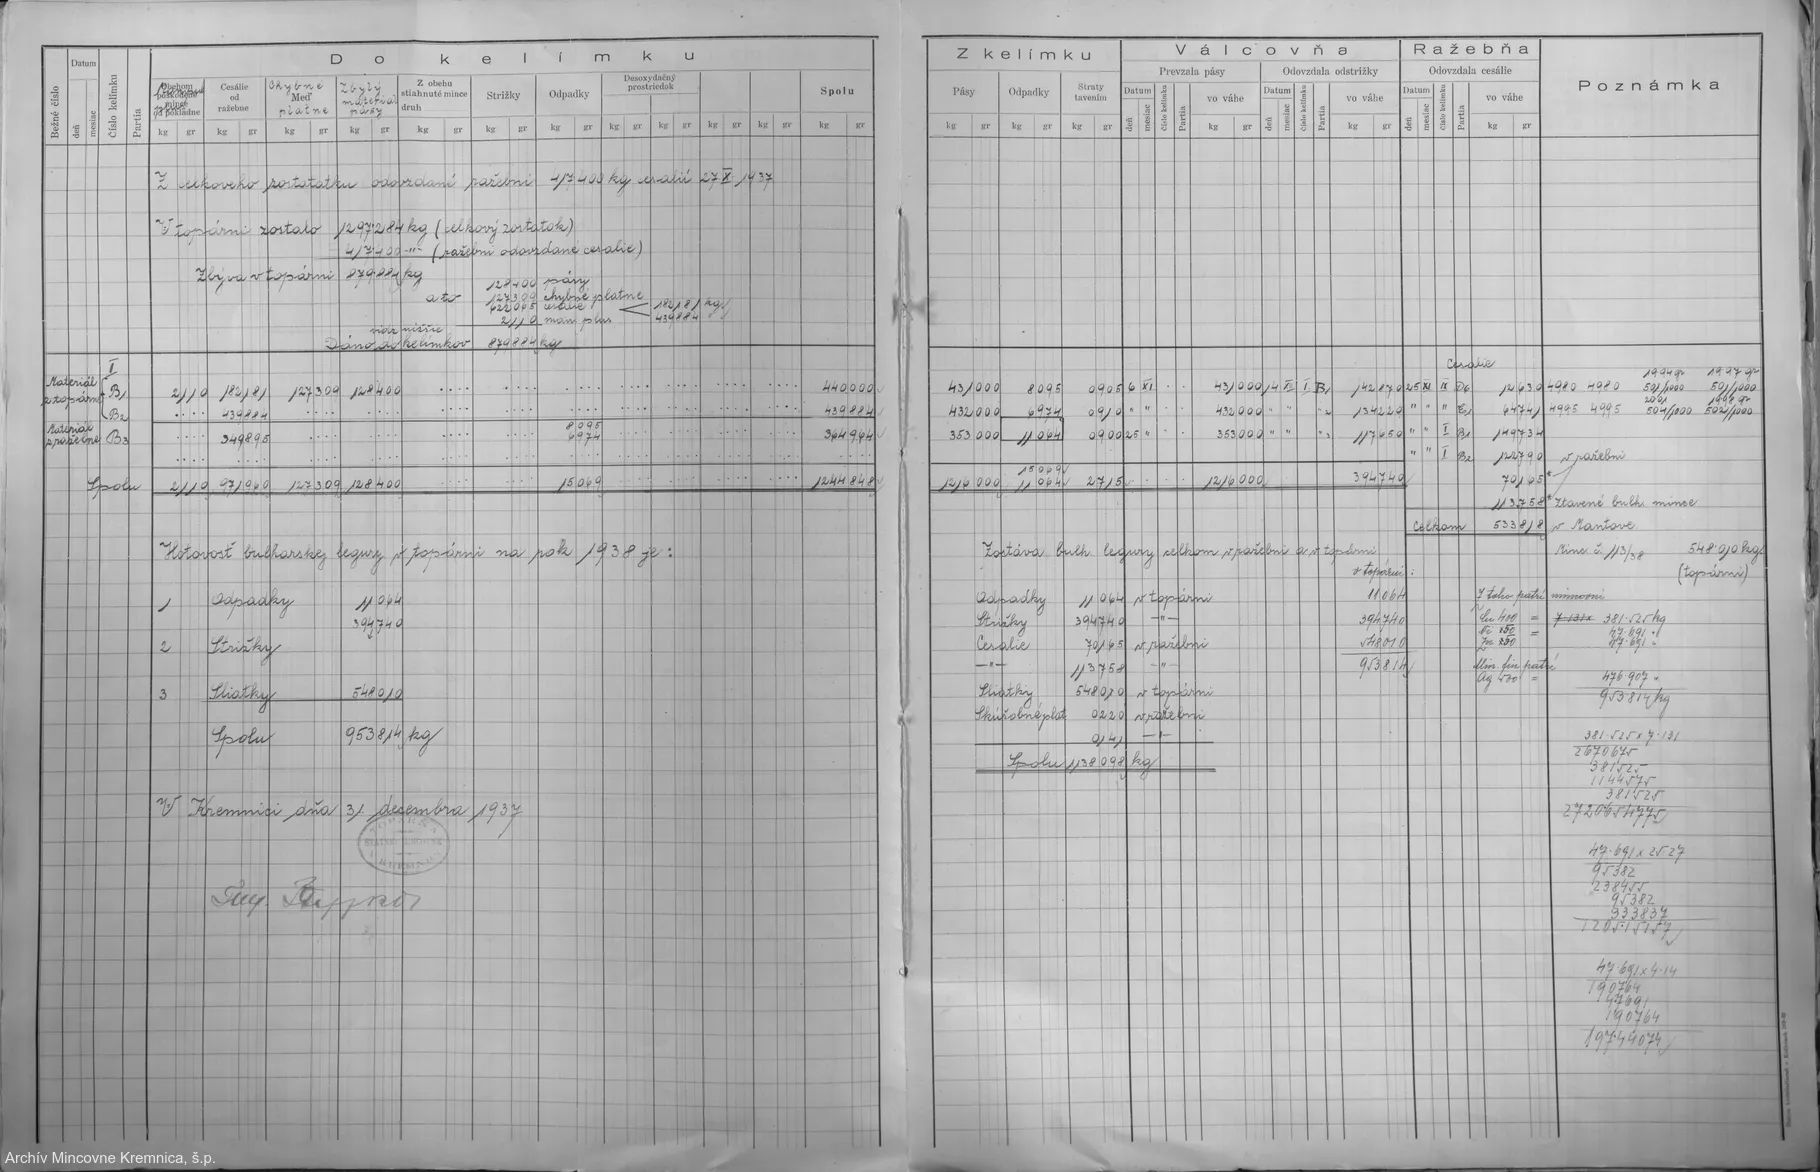 Do kelímku
Bežné číslo
Datum
deň
mesiac
Číslo kelímku
Partia
Obehom poškodené mince od pokladne
Cesálie od ražebne
Chybné Meď platne
Zbylý materiál pásy
Z obehu stiahnuté mince druh
Strižky
Odpadky
Desoxydačný prostriedok
Spolu
kg gr kg gr kg gr kg gr kg gr kg gr kg gr kg gr kg gr kg gr kg gr kg gr
Z celkoveho zostatku odovzdané ražebni 417400 kg cesalií 27 X. 1937
V topárni zostalo 1297284 kg (celkový zostatok)
417400 -"- (ražebni odovzdane cesalie)
Zbýva v topárni 879884 kg
128400 pásy
a to 127309 chybné platne
622065 cesalie 182181 kg
2110 439884
Dáno do kelímkov 879884 kg
I
Materiál z topárni B1 2110 182181 127309 128400 440000
B2 439884 439884
8095
Materiál z ražebne B3 349895 6974 364964
Spolu 2110 971960 127309 128400 15069 1244848
Hotovosť bulharskej legury v topárni na rok 1938 je:
1 Odpadky 11064
394740
2 Strižky
3 Sliatky 548010
Spolu 953814 kg
V Kremnici dňa 31 decembra 1937
Z kelímku
Válcovňa
Ražebňa
Poznámka
Prevzala pásy
Odovzdala odstrižky
Odovzdala cesálie
Pásy
Odpadky
Straty tavením
Datum
deň
mesiac
číslo kelímku
Partia
vo váhe
Datum
deň
mesiac
číslo kelímku
Partia
vo váhe
Datum
deň
mesiac
číslo kelímku
Partia
vo váhe
kg gr kg gr kg gr kg gr kg gr kg gr
Cesalie
1994 gr 1997 gr
431000 8095 0905 6 XI 431000 14 XI I B1 142870 25 XI IX D6 12630 4980 4980 501/1000 501/1000
432000 6974 0910 " " 432000 " " "2 134220 " " " E1 64741 4995 4995 501/1000 502/1000
353000 11064 0900 25 " 353000 " " "3 117650 " " I B1 149734
" " I B2 122790 v ražebni
15069
1216000 11064 2715 1216000 394740 70165
113758 * Ztavené bulh. mince
Celkom 533818 v Mantove
Zostáva bulh. legury celkom v ražebni a v topárni
v topárni:
Minc č. 113/38 548.010 kg
(topárni)
Odpadky 11064 v topárni 11064
Strižky 394740 -"- 394740
Cesalie 70165 v ražebni 548010
-"- 113758 -"- 953814
Sliatky 548010 v topárni
Skúšobné plat 0220 v ražebni
0141 -"-
Spolu 1138098 kg
Z toho patrí mincovni
Cu 400 = 381.525 kg
Ni = 47.691 "
Zn = 47.691 "
Min. fin patrí
Ag 500 = 476.907 "
953814 kg
381.525 x 7.131
2670675
381525
1144575
381525
2720654775
47.691 x 25.27
95382
238455
95382
333837
1205.15157
47.691 x 4.14
190764
47691
190764
197.44074
Archív Mincovne Kremnica, š.p.